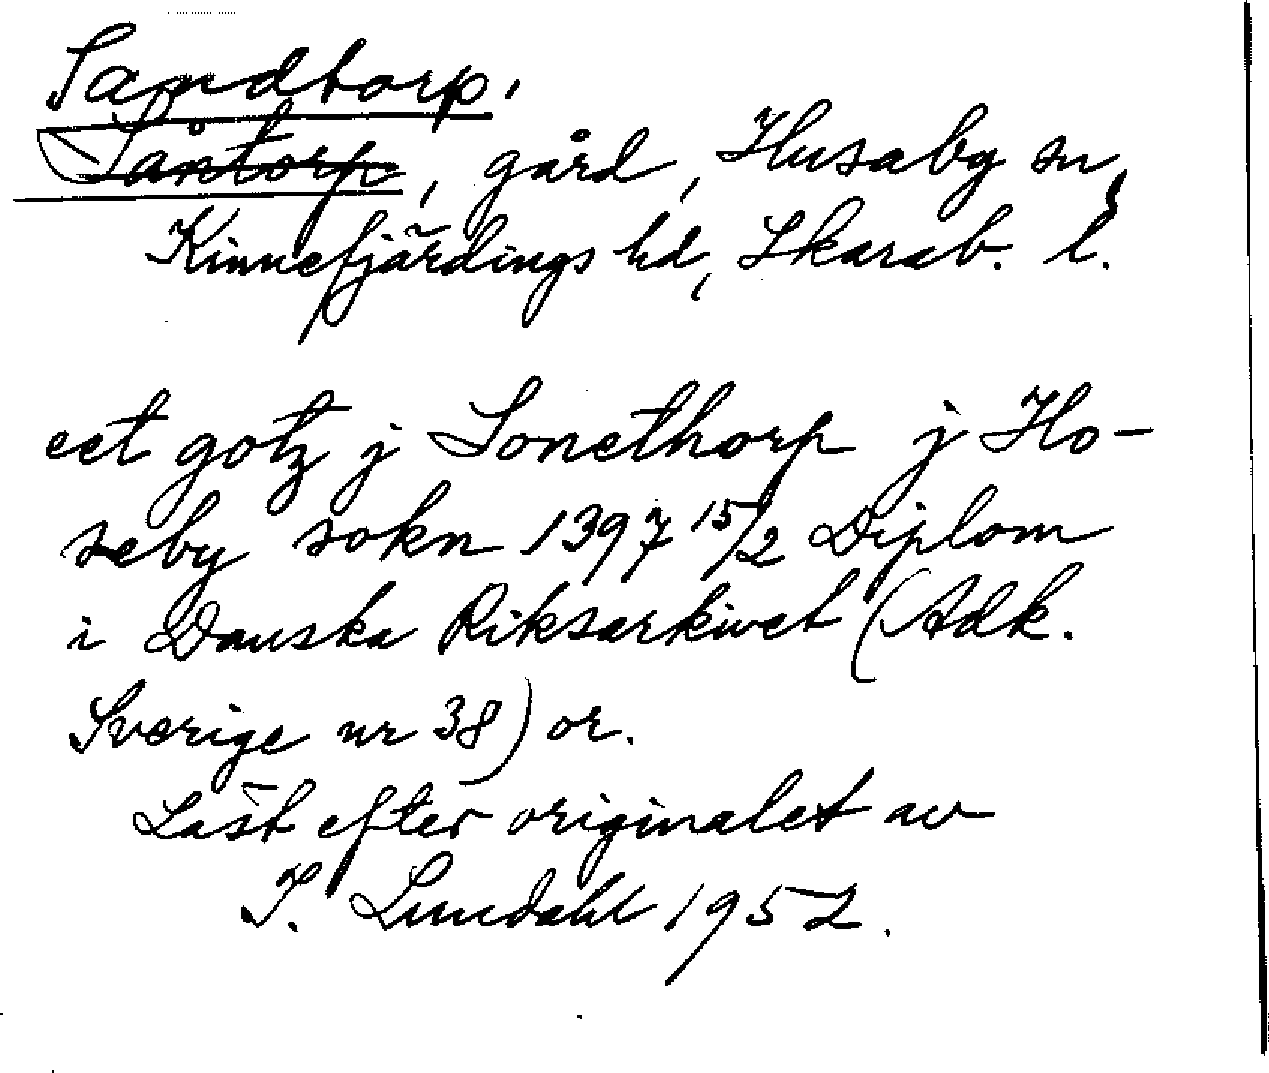 Sandtorp,
Såntorp, gård, Husaby sn,
Kinnefjärdings hd, Skarab. l.
eet gotz j Sonethorp j Ho-
seby sokn 1397 15/2 Diplom
i Danska Riksarkivet (Adk.
Sverige nr 38) or.
Läst efter originalet av
I. Lundahl 1952.